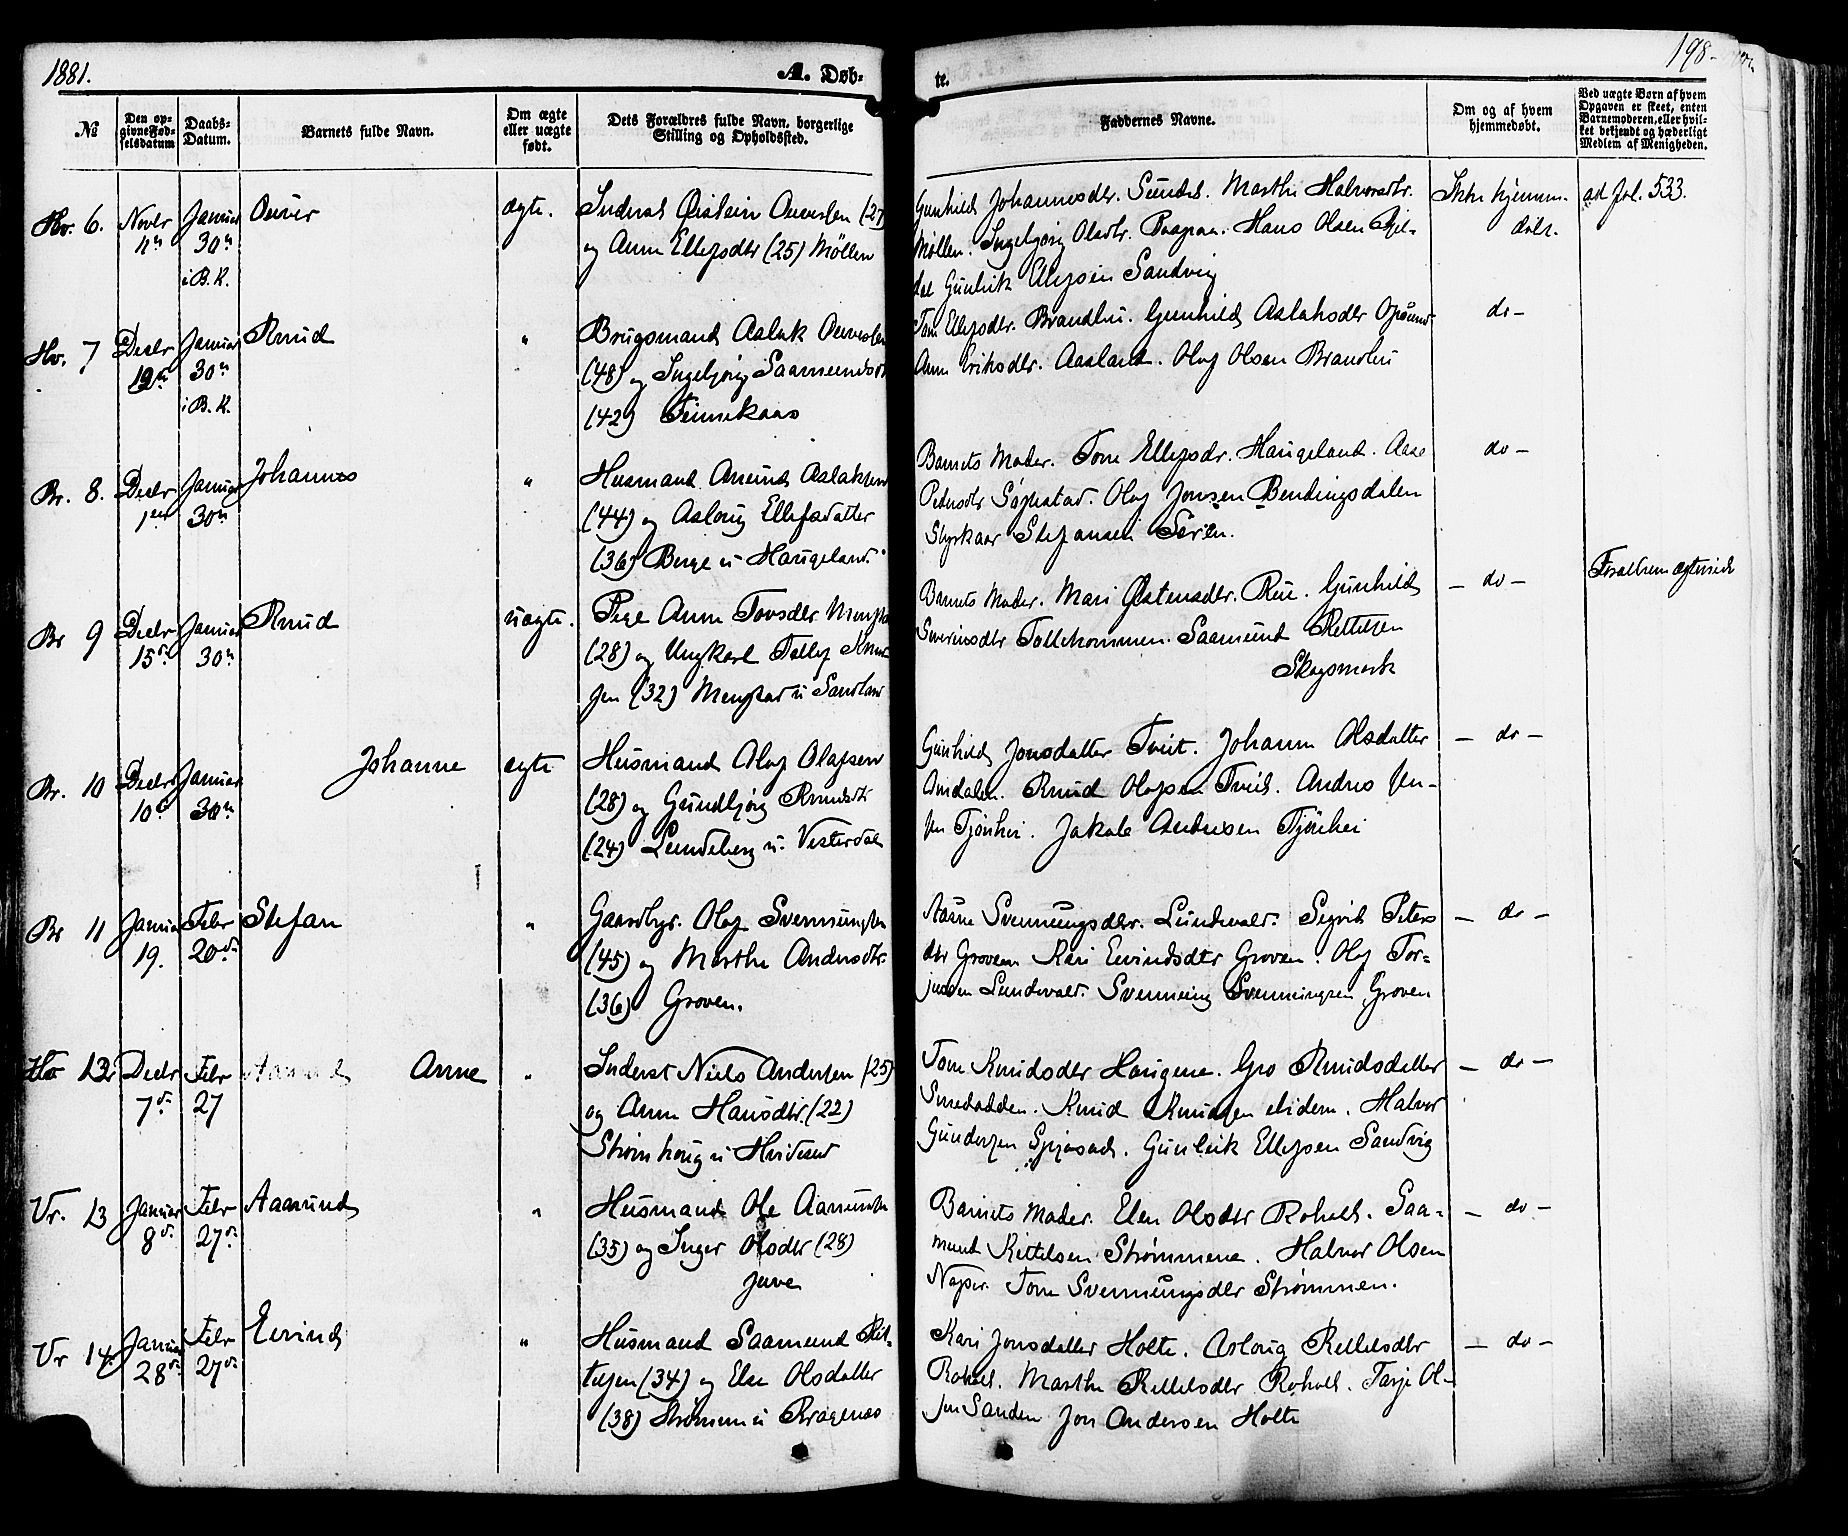 1881.
A. Døb-
te.
198
№
Den op-
givne Fød-
selsdatum
Daabs-
Datum.
Barnets fulde Navn.
Om ægte
eller uægte
født.
Dets Forældres fulde Navn, borgerlige
Stilling og Opholdssted.
Faddernes Navne.
Om og af hvem
hjemmedøbt.
Ved uægte Børn af hvem
Opgaven er skeet, enten
Barnemoderen, eller hvil-
ket bekjendt og hæderligt
Medlem af Menigheden.
Hv. 6. Novbr Januar ægte. Inderst Øistein (27)
4de 30te og Anne Ellefsdtr (25) Møllen
i B. K.
Gunhild Johannesdtr. Sundet. Marthe Halvorsdtr.
Møllen. Ingebjørg Olsdtr. Haas Olsen
dal Gunleik Ellefsen Sandvig
Ikke hjemme-
døbt.
ad fol. 533.
Hv. 7 Decbr Januar Knud " Brugsmand Aslak
19de 30te (48) og Ingebjørg Saamundsdtr
i B. K. (42)
Tone Ellefsdtr. Brandlien. Gunhild Aslaksdtr
Anne Eriksdtr. Aasland. Olaf Olsen Brandlien
do –
Br. 8. Decbr Januar Johannes " Husmand Aslaksen
1ste 30te (44) og Asloug Ellefsdatter
(36) Berge u. Haugeland.
Barnets Moder. Tone Ellefsdr. Haugeland. Aase
Pedersdtr Søftestad. Olaf Jonsen Bendingsdalen
Styrkaar Stefansen
do –
Br 9 Decbr Januar Knud uægte. Pige Anne Tovsdtr
15de 30te (28) og Ungkarl Tellef Knud-
sen (32)
Barnets Moder. Mari Østensdtr. Rue. Gunhild
Severinsdtr Saamund Kittelsen
Skogsmark
– do –
Forældrene
Br. 10 Decbr Januar Johanne ægte Husmand Olaf Olafsen
10de 30te (28) og Gundbjørg Knudsdtr
(24) Lundeberg u. Vesterdal
Gunhild Jonsdatter Tveit. Johanne Olsdatter
Knud Olafsen Tveit. Andres Jen-
sen Tjønhei. Jakob Andresen Tjønhei
– do –
Br 11 Januar Febr Stefan " Gaardbr. Olaf Svenningsen
19. 20de (45) og Marthe Andersdtr.
(36) Groven.
Svenningsdtr. Lundevald. Sigrid Peters-
dtr Groven Kari Eivindsdtr Groven. Olaf Tor-
jusen Lundevald. Svenning Svenningsen Groven
– do –
Hv 12 Decbr Febr Anne " Inderst Niels Andersen (25)
7de 27 og Anne Hansdtr. (22)
Strømhoug u Hvideseid
Tone Knudsdtr Haugene. Gro Knudsdatter
Smedodden. Knud Knudsen ibidem. Halvor
Gundersen Gunleik Ellefsen Sandvig
– do –
Vr. 13 Januar Febr Aamund " Husmand Ole Aamundsen
8de 27de (35) og Inger Olsdtr (28)
Juve
Barnets Moder. Elen Olsdtr Roholt. Saa-
mund Kittelsen Strømmene. Halvor Olsen
Tone Svenningsdtr Strømmen.
– do –
Vr 14. Januar Febr Eivind " Husmand Saamund Kit-
28de 27de telsen (34) og Else Olsdatter
(38) Strømmen u Kragenæs
Kari Jonsdatter Holte. Asloug Kittelsdtr
Roholt. Marthe Kittelsdtr Roholt. Tarje Ol-
sen Sanden Jon Andersen Holte
– do –